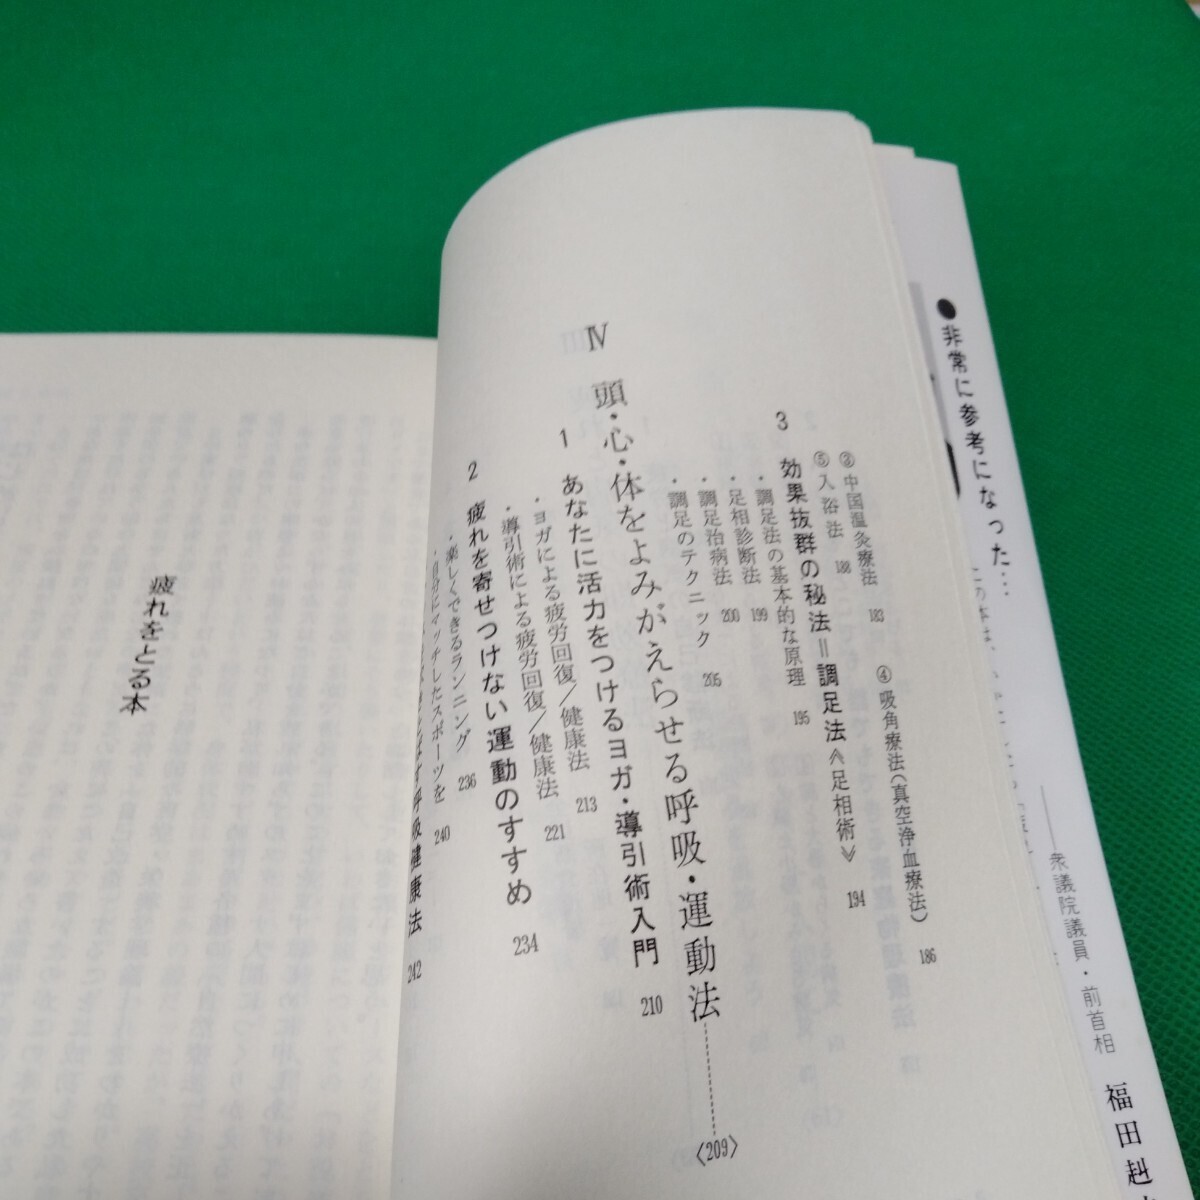 ●非常に参考になった…
衆議院議員・前首相
福田赳
③中国温灸療法 183
④吸角療法(真空浄血療法) 186
⑤入浴法 188
3 効果抜群の秘法=調足法《足相術》 194
・調足法の基本的な原理 195
・足相診断法 199
・調足治病法 200
・調足のテクニック 205
Ⅳ 頭・心・体をよみがえらせる呼吸・運動法 〈209〉
1 あなたに活力をつけるヨガ・導引術入門 210
・ヨガによる疲労回復/健康法 213
・導引術による疲労回復/健康法 221
2 疲れを寄せつけない運動のすすめ 234
・楽しくできるランニング 236
・自分にマッチしたスポーツを 240
呼吸健康法 242
疲れをとる本